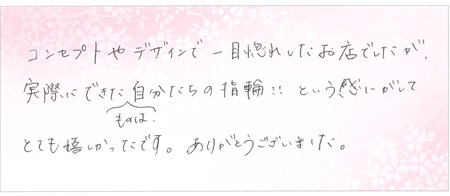 コンセプトやデザインで一目惚れしたお店でしたが、
実際にできた自分たちの指輪!! という感じがして
ものは、
とても嬉しかったです。ありがとうございました。